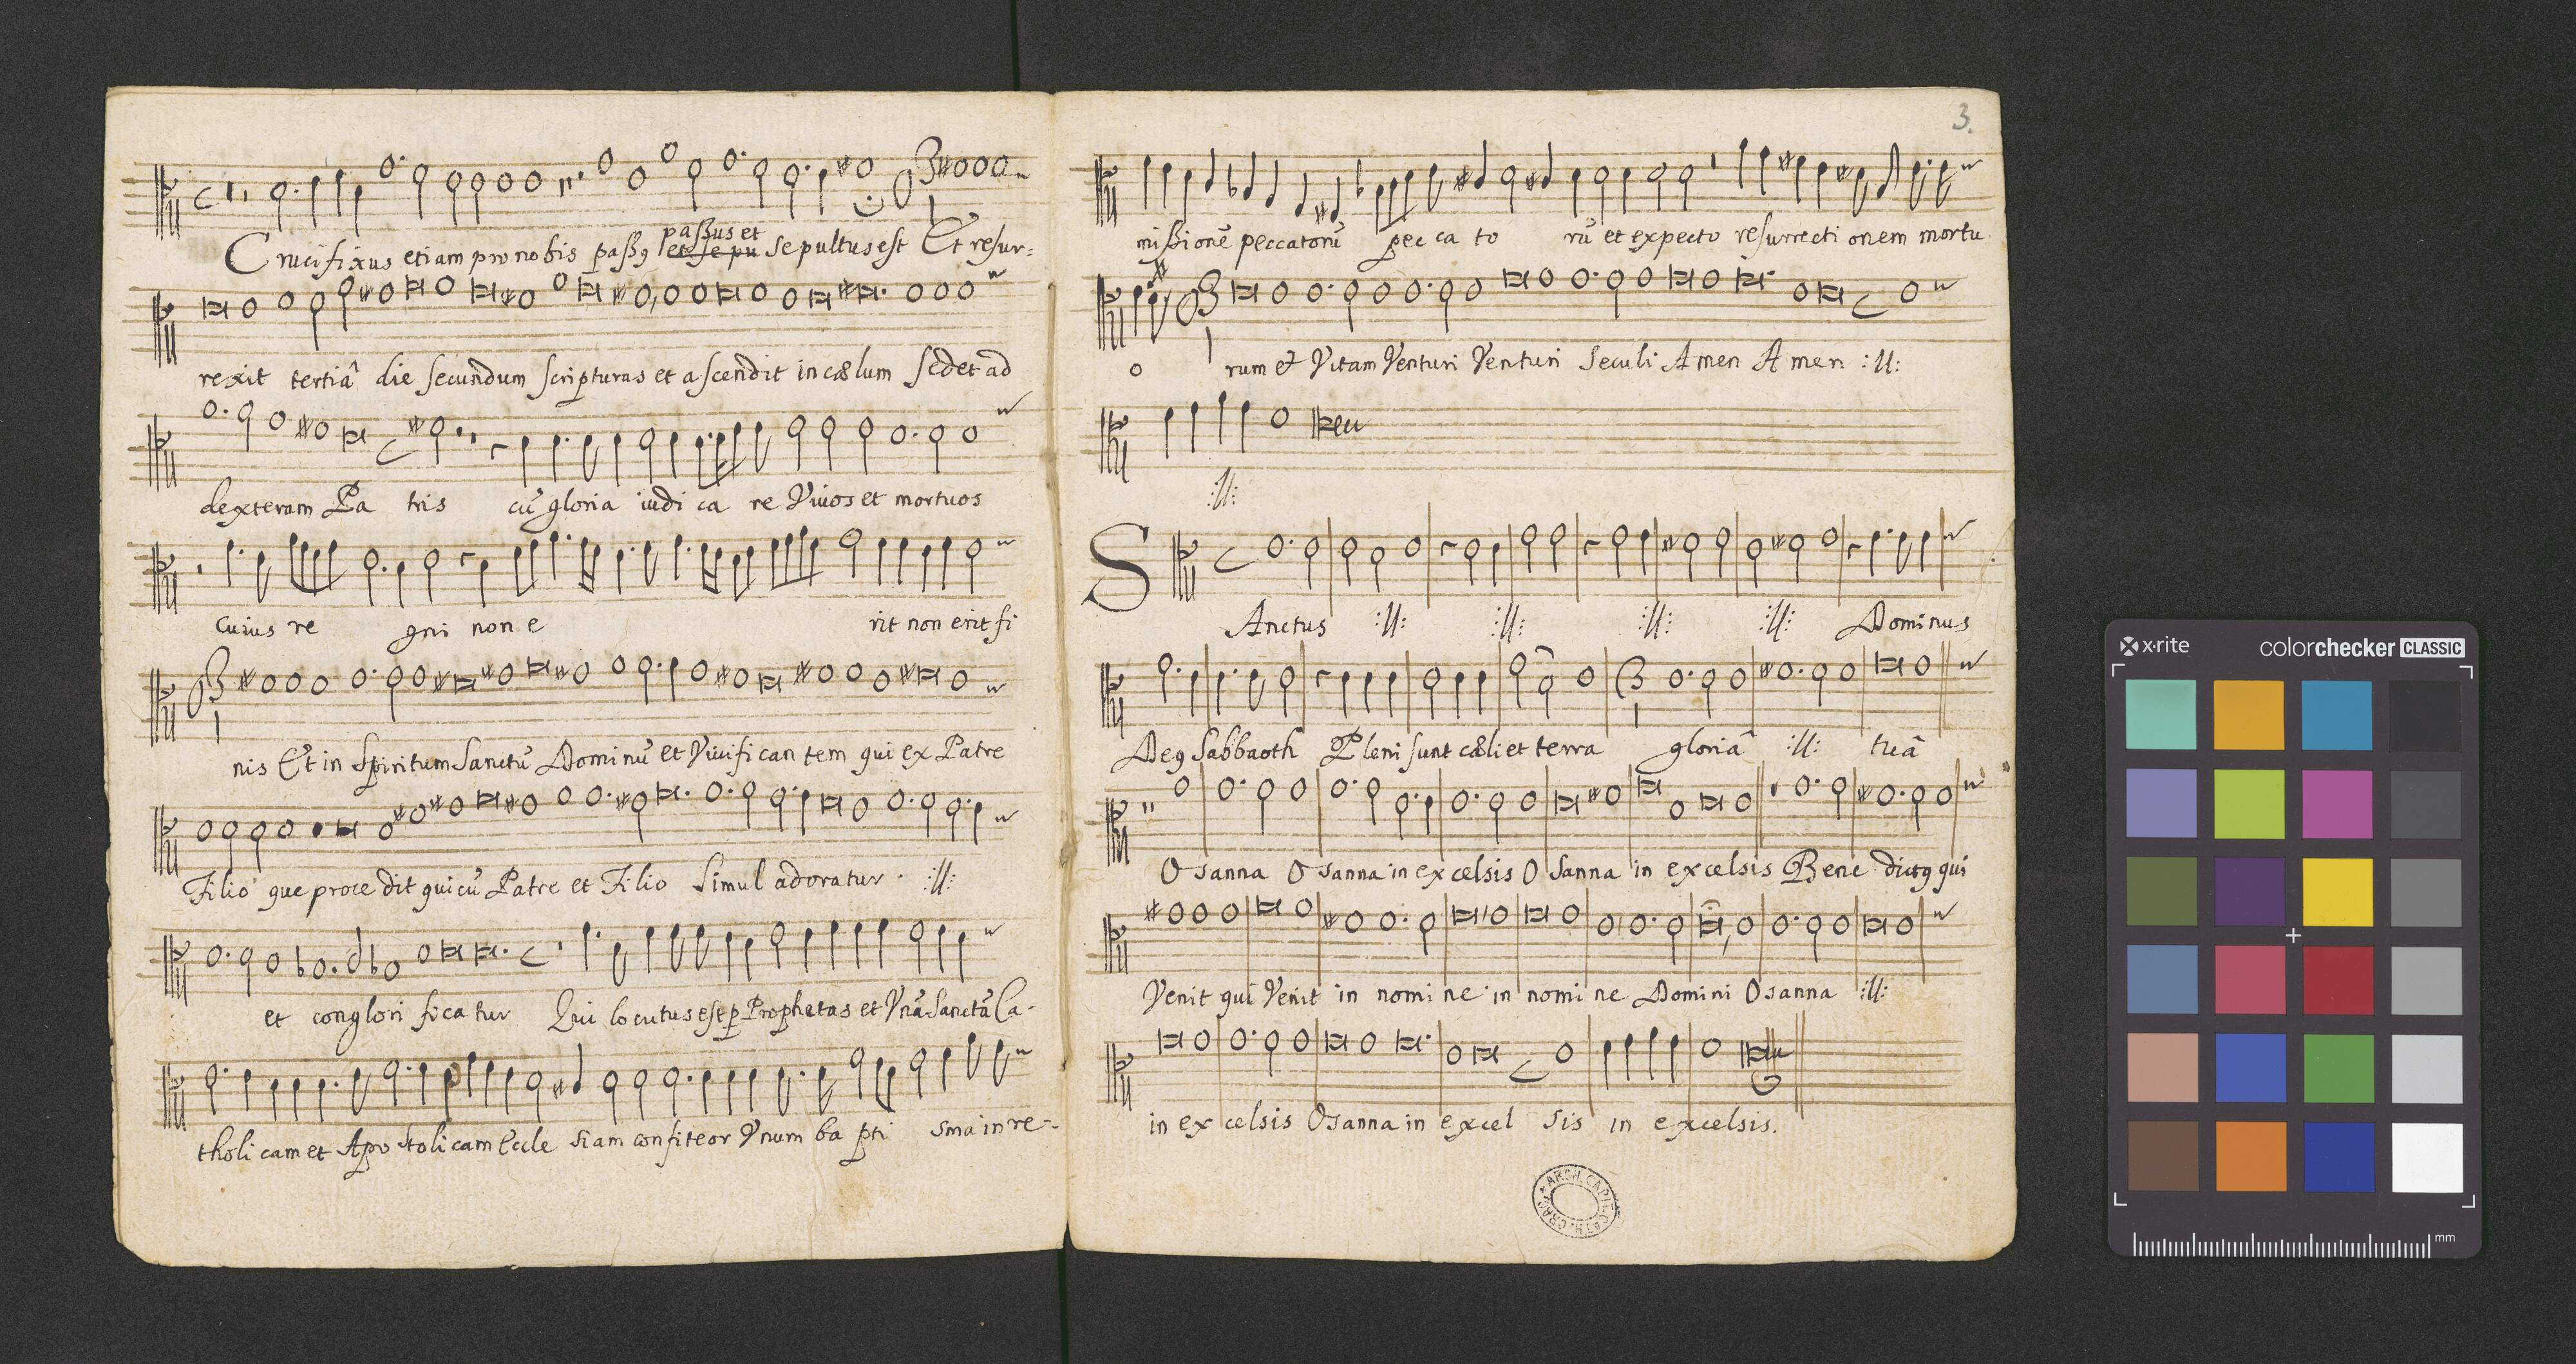 Crucifixus etiam pro nobis paßꝯ passus et et se pu sepultus est Et resur=
rexit tertiâ die secundum scripturas et ascendit in cælum sedet ad
dexteram Pa tris cū gloria iudi ca re Viuos et mortuos
cuius re gni non e rit non erit fi
nis Et in Spiritum Sanctū Dominū et Viuifi can tem qui ex Patre
Filio que proce dit qui cū Patre et Filio simul adoratur :ll:
et conglori fica tur Qui locutus est p Prophetas et Vnā Sanctā Ca-
tholi cam et Apo stoli cam Eccle siam confiteor Vnum ba pti sma in re=
3.
mißionē peccatorū pec ca to rū et expecto resurrecti onem mortu
o rum et Vitam Venturi Venturi Seculi Amen Amen :ll:
:ll:
SAnctus :ll: :ll: :ll: :ll: Dominus
Deꝯ Sabbaoth Pleni sunt cæli et terra gloriâ :ll: tuâ
Osanna Osanna in excelsis O sanna in excelsis Bene dictꝯ qui
Venit qui Venit in nomi ne in nomi ne Domini Osanna :ll:
in ex celsis Osanna in excel sis in excelsis.
ARCH. CAPIT. CATH. CRAC.
x·rite colorchecker CLASSIC
mm